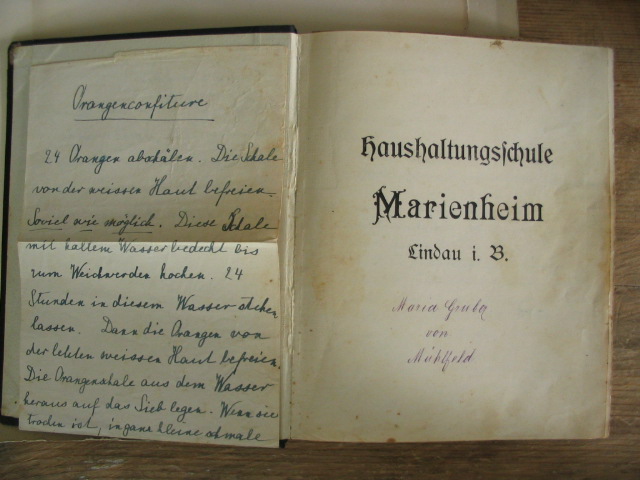 Orangenconfiture
24 Orangen abschälen. Die Schale
von der weissen Haut befreien.
Soviel wie möglich. Diese Schale
mit kaltem Wasser bedeckt bis
zum Weichwerden kochen. 24
Stunden in diesem Wasser stehen
lassen. Dann die Orangen von
der letzten weissen Haut befreien.
Die Orangenschale aus dem Wasser
heraus auf das Sieb legen. Wenn sie
trocken ist, in ganz kleine schmale
Haushaltungsschule
Marienheim
Lindau i. B.
Maria Gruber
von
Mühlfeld